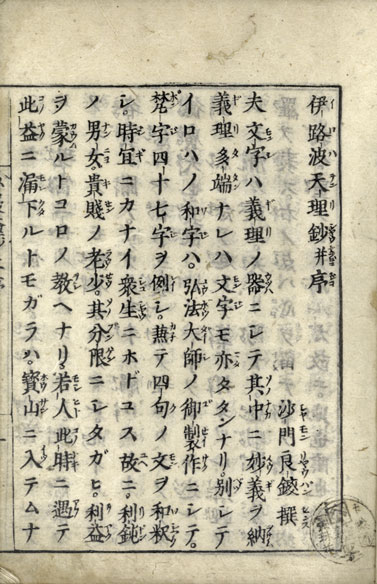 伊路波天理鈔并序
沙門良鑁撰
夫文字ハ義理ノ器ニシテ其中ニ妙義ヲ納
義理多端ナレハ文字モ亦タタンナリ。別シテ
イロハノ和字ハ。弘法大師ノ御製作ニシテ。
梵字四十七字ヲ例シ。𤍠テ四句ノ文ヲ和釈
シ。時宜ニカナイ衆生ニホドコス故ニ。利鈍
ノ男女。貴賤ノ老少其分限ニシタガヒ。利益
ヲ蒙ルトコロノ教ヘナリ。若人此時ニ遇テ
此益ニ漏下ルトモガラハ。寳山ニ入テムナ